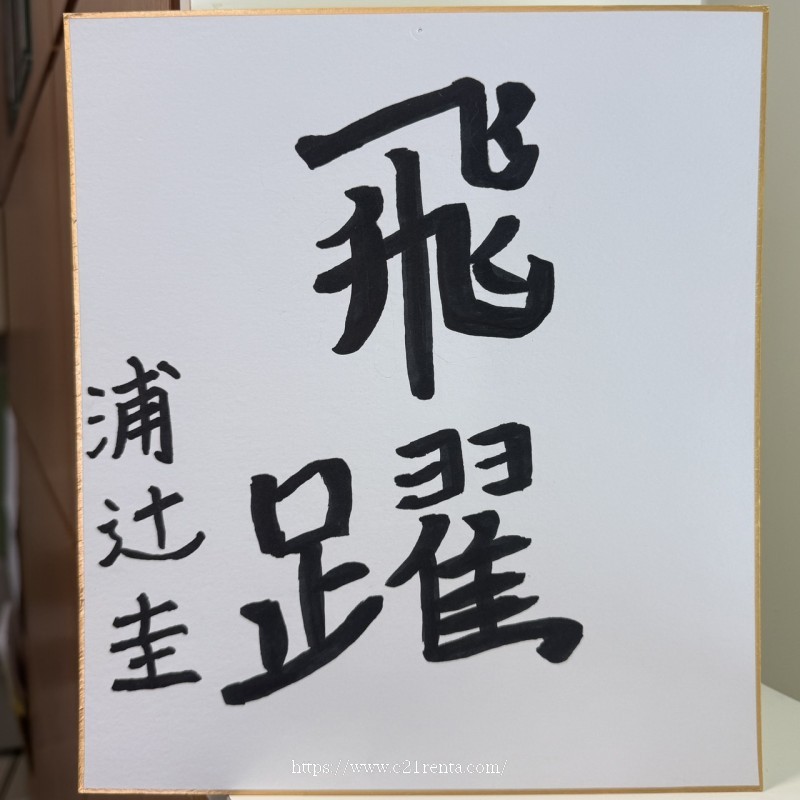 飛躍
浦辻圭
https://www.c21renta.com/